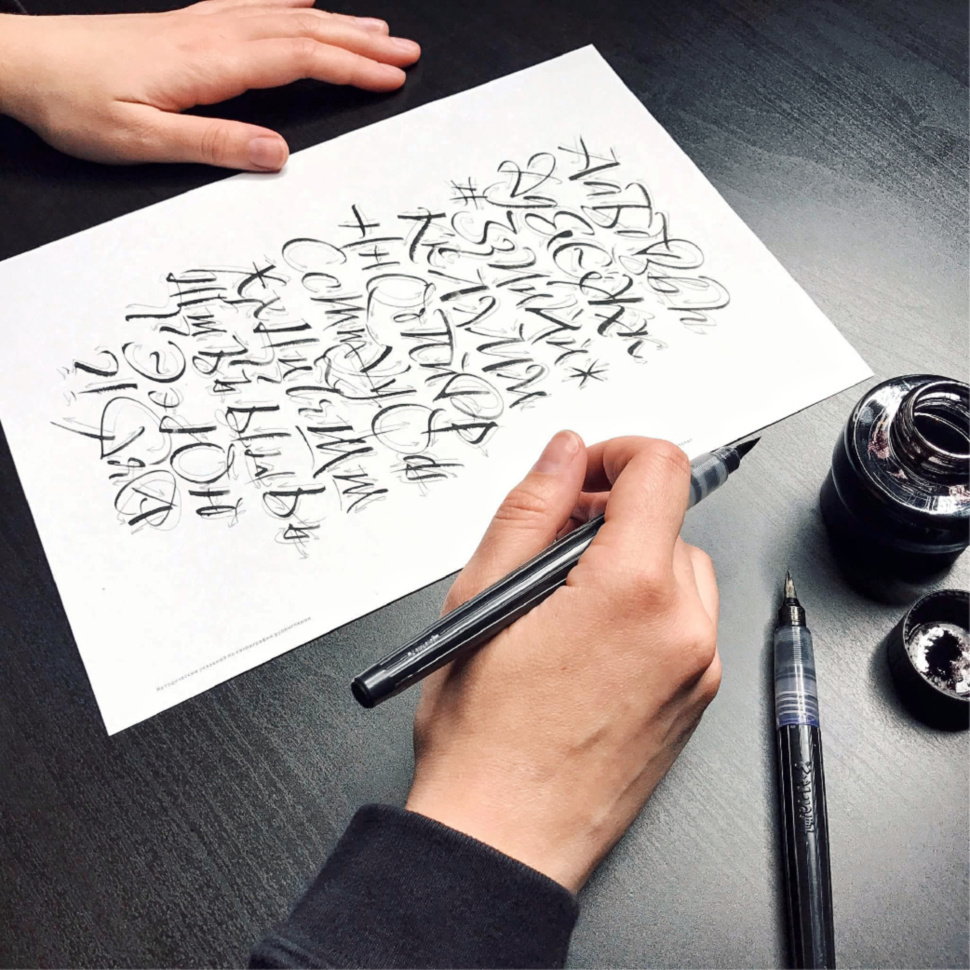 АаБбВвГг
ДдЕеЁёЖж
#ЗзИиЙй*
КкЛлМм
+НнОоПпРр
СсТтУуФф
*ХхЦцЧчШш
ЩщЪъЫыЬь
ЭэЮю
?!Яя